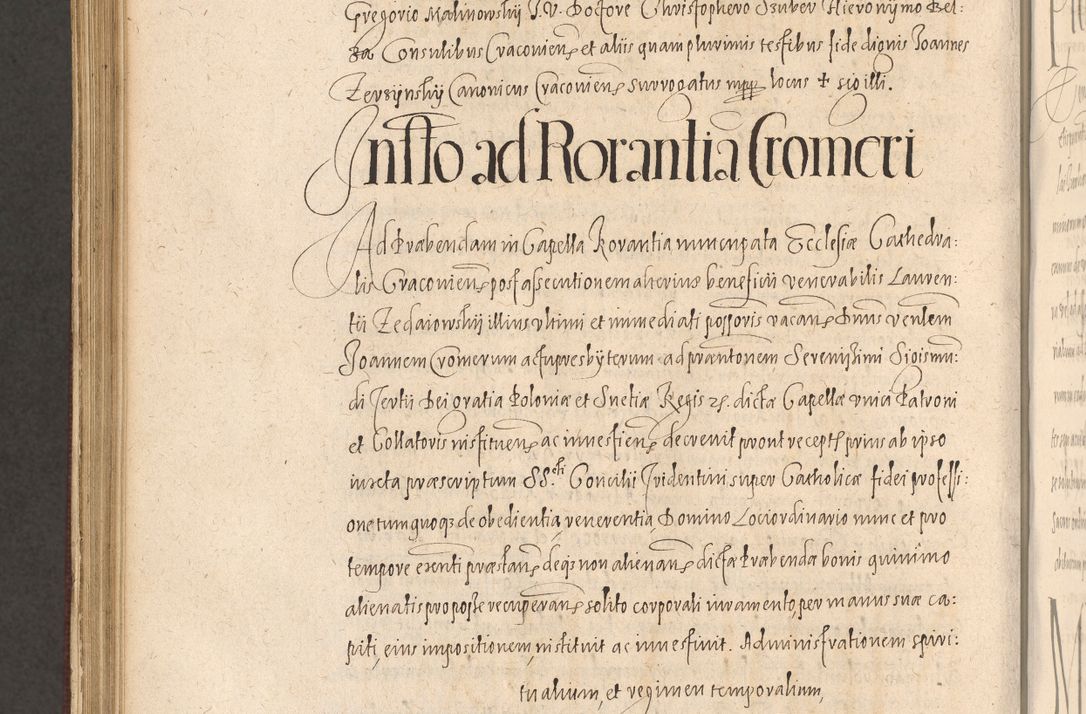 Gregorio Malinowskij I.V. Doctore Christophero Szuber Hieronymo Bel-
za Consulibus Cracovien et aliis quam plurimis testibus fide dignis Ioannes
Zerzijnskij Canonicus Cracovien Surrogatus mpp locus + sigilli.
Instto ad Rorantia Cromeri
Ad Præbendam in Capella Rorantia nuncupata Ecclesiæ Cathedra:
lis Cracovien post assecutionem alterius beneficii venerabilis Lauren:
tii Zedaiowskij illius ultimi et immediati possoris vacan Dnus venlem
Ioannem Cromerum actu presbyterum ad præntonem Serenissimi Sigismun:
di Tertii Dei gratia Poloniæ et Suetiæ Regis etc. dictæ Capellæ unici Patroni
et Collatoris instituen ac investien decrevit prout recepta prius ab ipso
iuxta præscriptum SS.cti Concilii Tridentini super Catholicæ fidei professi:
one tum quoq de obedientia, reverentia Domino Loci ordinario nunc et pro
tempore exenti præstan deqs non alienan dictæ Præbendæ bonis quinimo
alienatis pro posse recuperan solito corporali iuramento, per manus suæ ca:
piti, eius impositionem, instituit ac investivit. Administrationem spiri:
tualium, et regimen temporalium,